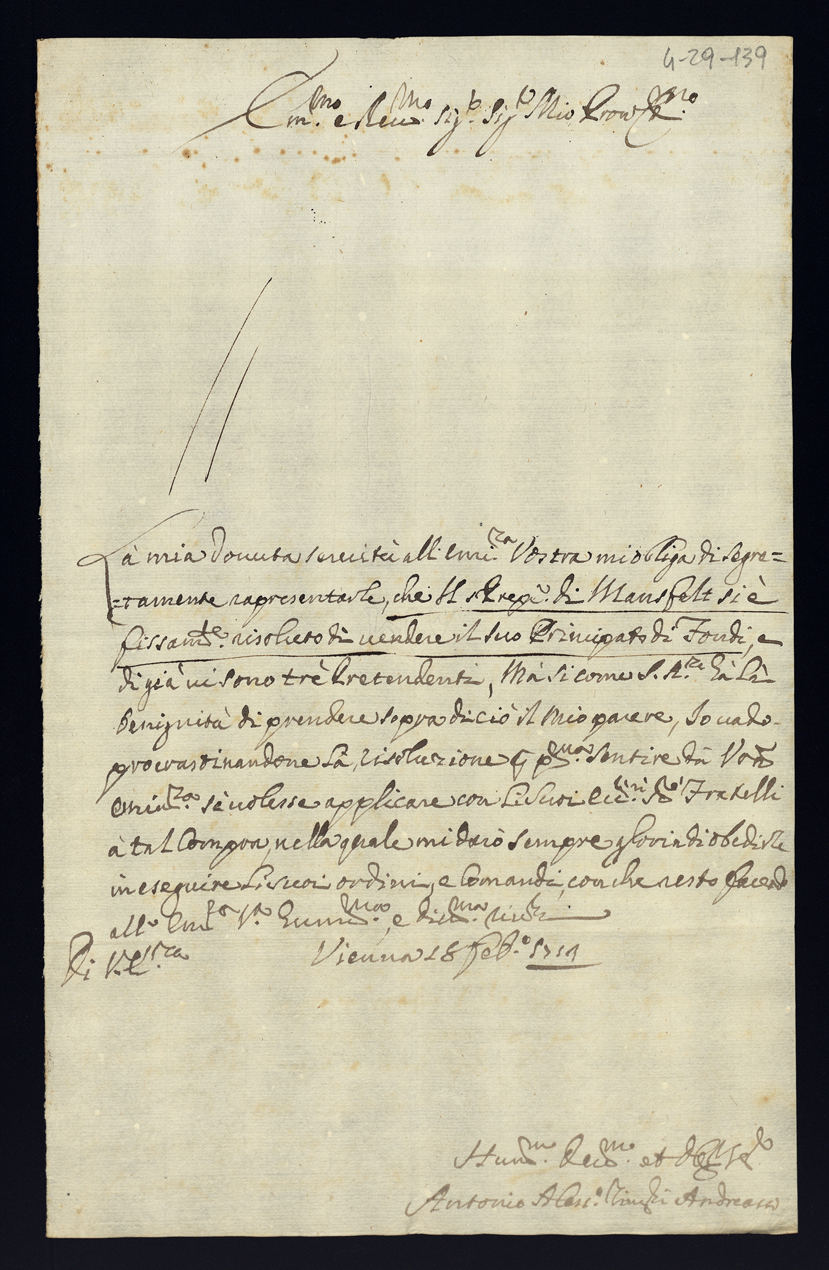 4-29-139
Em.mo e Reu.mo Sig.r Sig.r Mio Pron
La mia douuta seruitù all'Emi.za Vostra mi obliga di segre=
=tamente rapresentarle, che Il S. Prepe. di Mansfelt si è
fissam.te risoluto di uendere il suo Principato di Fondi, e
di già ui sono trè Pretendenti, Mà si come S. A.za hà La
benignità di prendere sopra di ciò il Mio parere, Io uado
procrastinandone La risoluzione sentire dà Vra
Emin.za sè uolesse applicare con Li Suoi Fratelli
à tal Compra, nella quale mi darò sempre gloria di obedirle
in eseguire Li suoi ordini, e Comandi, con che resto facendo
all' V.a
Di V. E.za Vienna 18 Feb.o 1711
Hum.mo Deu.mo et
Antonio Aless.o Andreassi